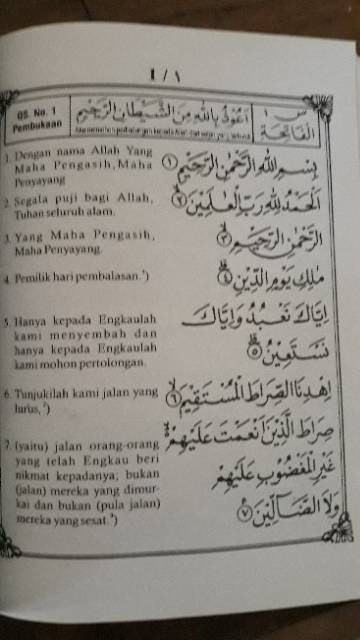 1 / ١
QS. No. 1
Pembukaan
اَعُوْذُ بِاللّٰهِ مِنَ الشَّيْطَانِ الرَّجِيْمِ
الفَاتِحَة
1. Dengan nama Allah Yang
Maha Pengasih, Maha
Penyayang
بِسْمِ اللّٰهِ الرَّحْمٰنِ الرَّحِيْمِ ١
2. Segala puji bagi Allah,
Tuhan seluruh alam.
اَلْحَمْدُ لِلّٰهِ رَبِّ الْعٰلَمِيْنَ ٢
3. Yang Maha Pengasih,
Maha Penyayang.
الرَّحْمٰنِ الرَّحِيْمِ ٣
4. Pemilik hari pembalasan.¹)
مٰلِكِ يَوْمِ الدِّيْنِ ٤
5. Hanya kepada Engkaulah
kami menyembah dan
hanya kepada Engkaulah
kami mohon pertolongan.
اِيَّاكَ نَعْبُدُ وَاِيَّاكَ
نَسْتَعِيْنُ ٥
6. Tunjukilah kami jalan yang
lurus, ²)
اِهْدِنَا الصِّرَاطَ الْمُسْتَقِيْمَ ٦
7. (yaitu) jalan orang-orang
yang telah Engkau beri
nikmat kepadanya; bukan
(jalan) mereka yang dimur-
kai dan bukan (pula jalan)
mereka yang sesat.³)
صِرَاطَ الَّذِيْنَ اَنْعَمْتَ عَلَيْهِمْ
غَيْرِ الْمَغْضُوْبِ عَلَيْهِمْ
وَلَا الضَّاۤلِّيْنَ ٧